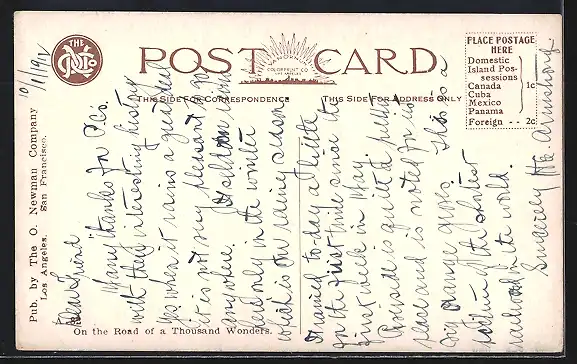 POST CARD.
THIS SIDE FOR CORRESPONDENCE
THIS SIDE FOR ADDRESS ONLY
PLACE POSTAGE
HERE
Domestic
Island Pos-
sessions
Canada
Cuba
Mexico
Panama
1c
Foreign -- 2c
THE
Pub. by The O. Newman Company
Los Angeles. San Francisco.
On the Road of a Thousand Wonders.
10/1/1911
Dear Friend
Many thanks for P.Cs.
with they interesting history
yes when it rains a great deal
it is not very pleasant to go
anywhere. It seldom rains
here only in the winter
which is our rainy season.
It rained to-day a little
for the first time since the
first week in May
Riverside is quite a pretty
place and is noted for its
big orange groves. This is a
picture of the shortest
railroad in the world.
Sincerely Armstrong